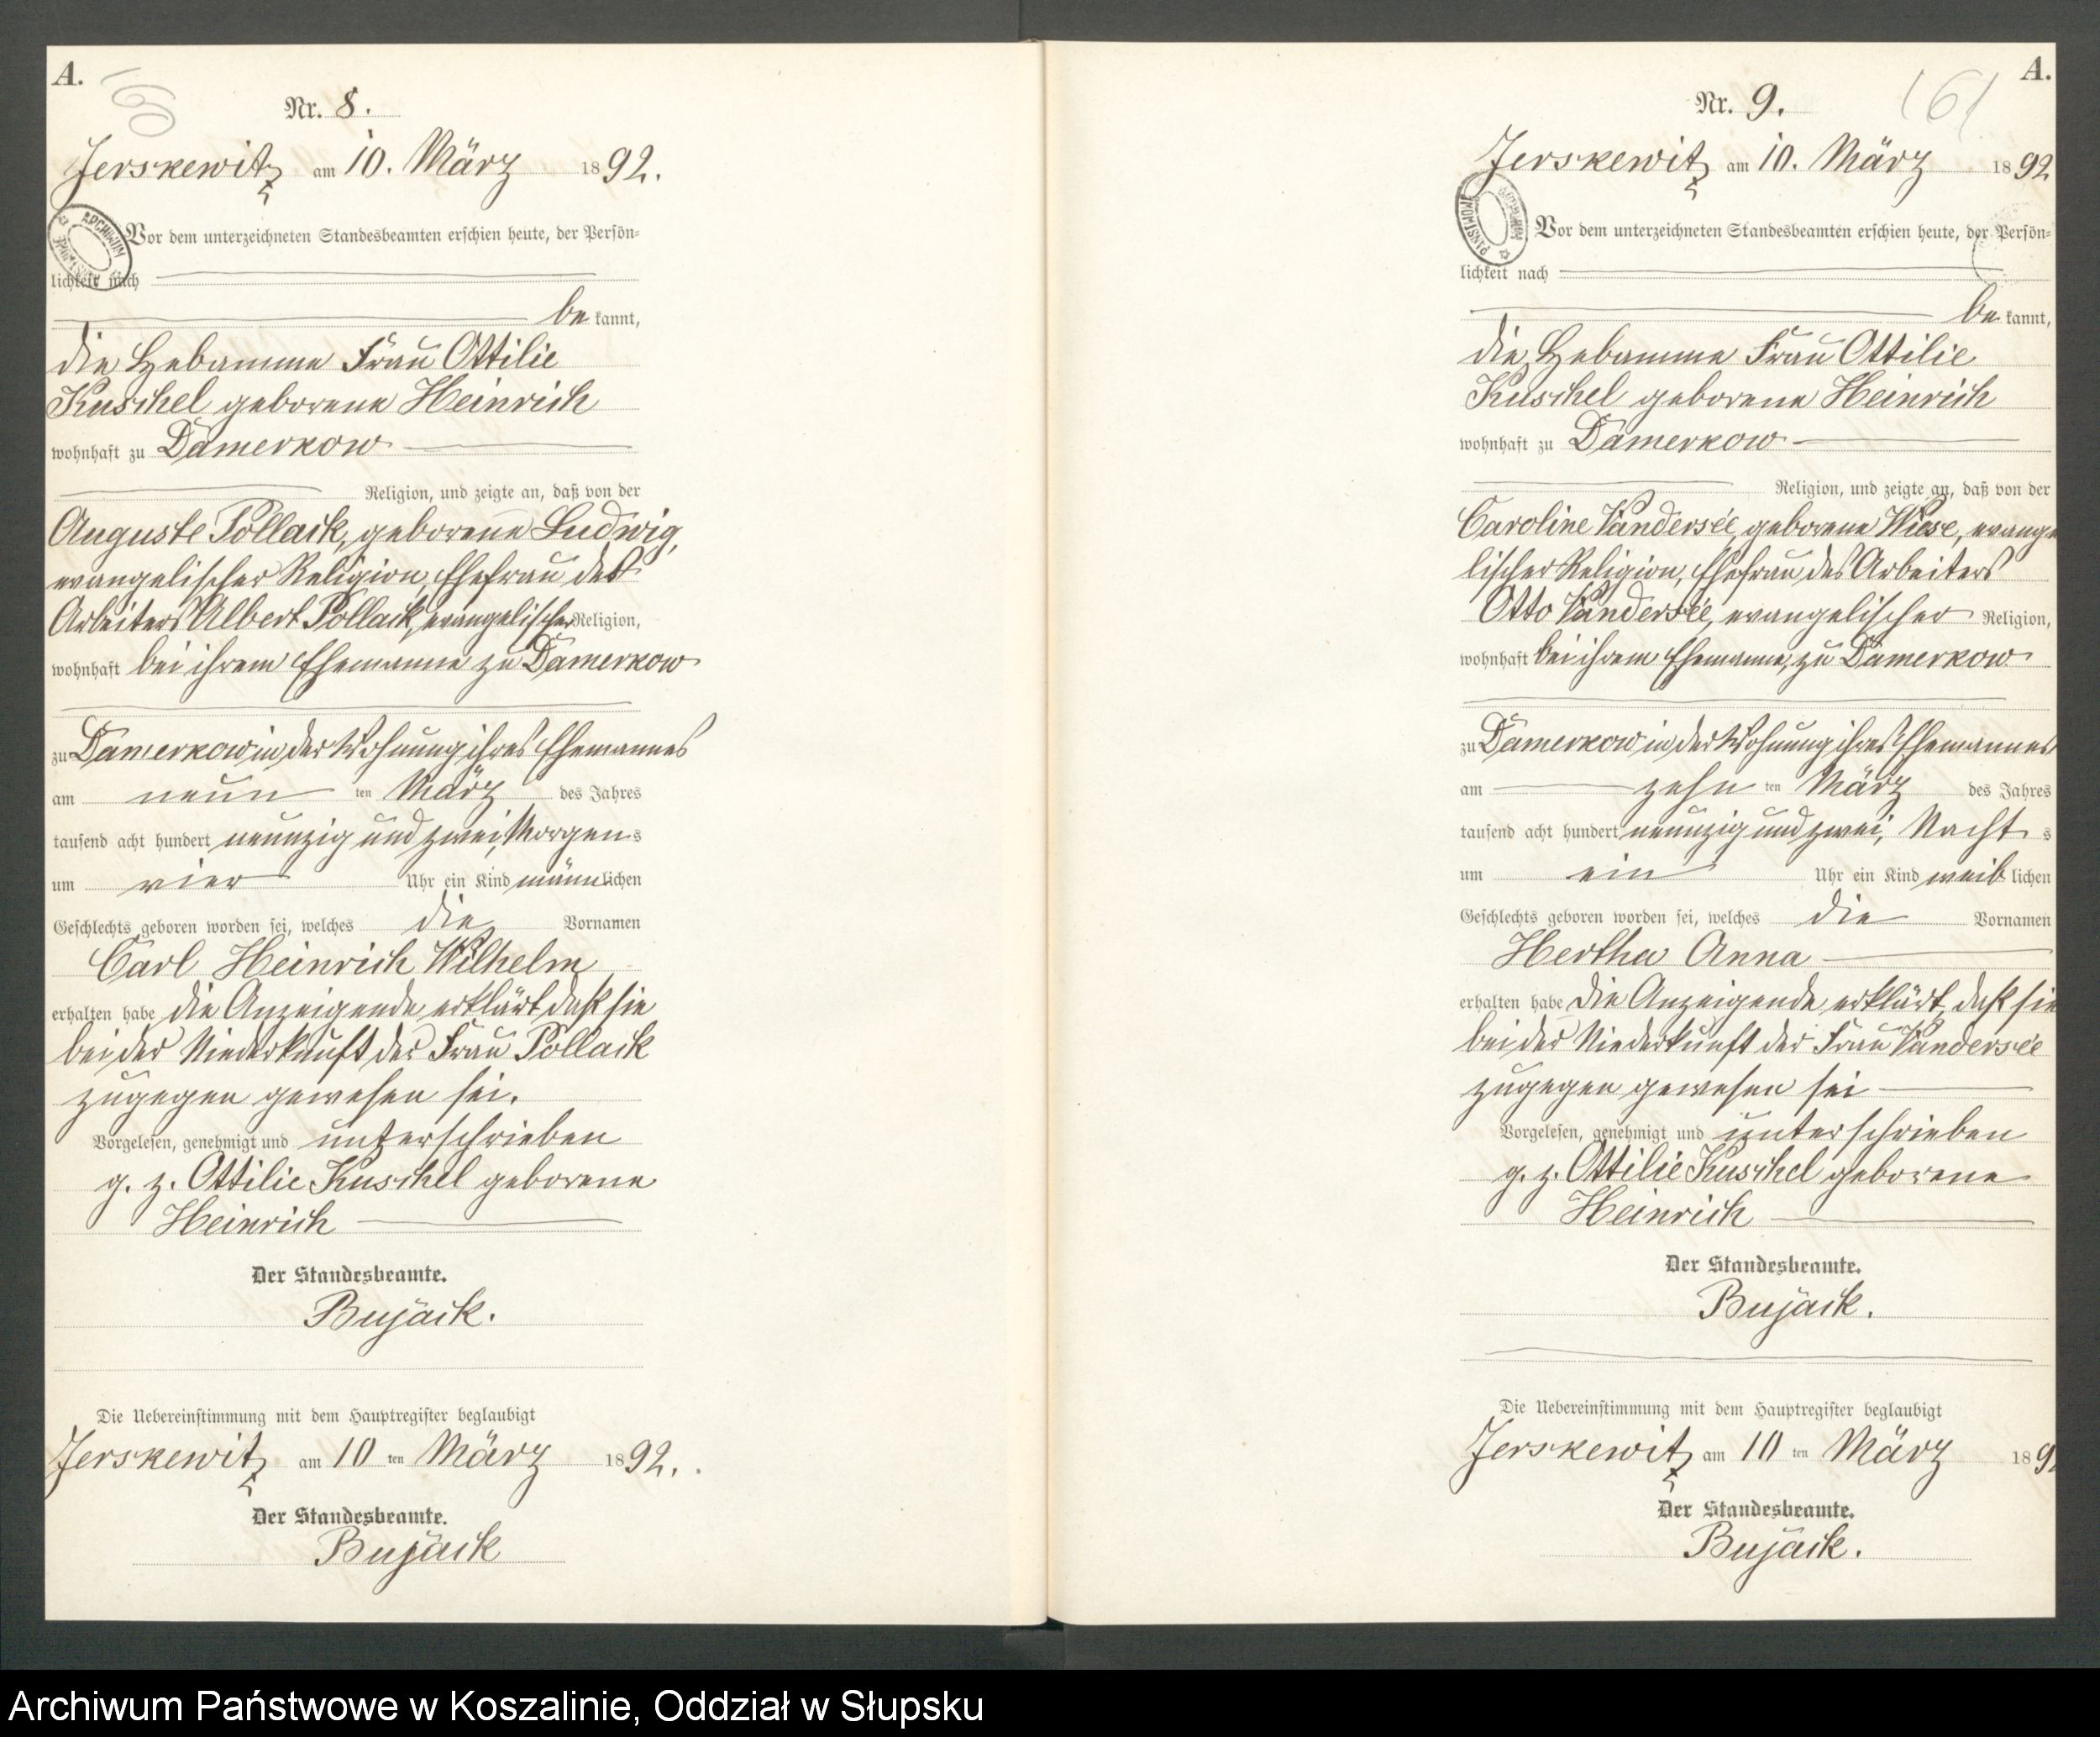 A.
Nr. 8.
Jerskewitz am 10. März 1892.
Vor dem unterzeichneten Standesbeamten erschien heute, der Persön-
lichkeit nach
bekannt,
die Hebamme Frau Ottilie
Kuschel geborene Heinrich
wohnhaft zu Damerkow
Religion, und zeigte an, daß von der
Auguste Pollack, geborene Ludwig,
evangelischer Religion, Ehefrau des
Arbeiters Albert Pollack, evangelischer Religion,
wohnhaft bei ihrem Ehemanne zu Damerkow
zu Damerkow in der Wohnung ihres Ehemannes
am neun ten März des Jahres
tausend acht hundert neunzig und zwei, Morgens
um vier Uhr ein Kind männlichen
Geschlechts geboren worden sei, welches die Vornamen
Carl Heinrich Wilhelm
erhalten habe die Anzeigende erklärt, daß sie
bei der Niederkunft der Frau Pollack
zugegen gewesen sei.
Vorgelesen, genehmigt und unterschrieben
g. z. Ottilie Kuschel geborene
Heinrich
Der Standesbeamte.
Bujack.
Die Uebereinstimmung mit dem Hauptregister beglaubigt
Jerskewitz am 10 ten März 1892.
Der Standesbeamte.
Bujack
A.
6
Nr. 9.
Jerskewitz am 10. März 1892
ARCHIWUM
Vor dem unterzeichneten Standesbeamten erschien heute, der Persön-
lichkeit nach
bekannt,
die Hebamme Frau Ottilie
Kuschel geborene Heinrich
wohnhaft zu Damerkow
Religion, und zeigte an, daß von der
Caroline Vandersee, geborene Wiese, evange
lischer Religion, Ehefrau des Arbeiters
Otto Vandersee, evangelischer Religion,
wohnhaft bei ihrem Ehemanne, zu Damerkow
zu Damerkow in der Wohnung ihres Ehemannes
am zehn ten März des Jahres
tausend acht hundert neunzig und zwei, Nachts
um ein Uhr ein Kind weiblichen
Geschlechts geboren worden sei, welches die Vornamen
Hertha Anna
erhalten habe die Anzeigende erklärt, daß sie
bei der Niederkunft der Frau Vandersee
zugegen gewesen sei
Vorgelesen, genehmigt und unterschrieben
g. z. Ottilie Kuschel geborene
Heinrich
Der Standesbeamte.
Bujack.
Die Uebereinstimmung mit dem Hauptregister beglaubigt
Jerskewitz am 10 ten März 189
Der Standesbeamte.
Bujack.
Archiwum Państwowe w Koszalinie, Oddział w Słupsku